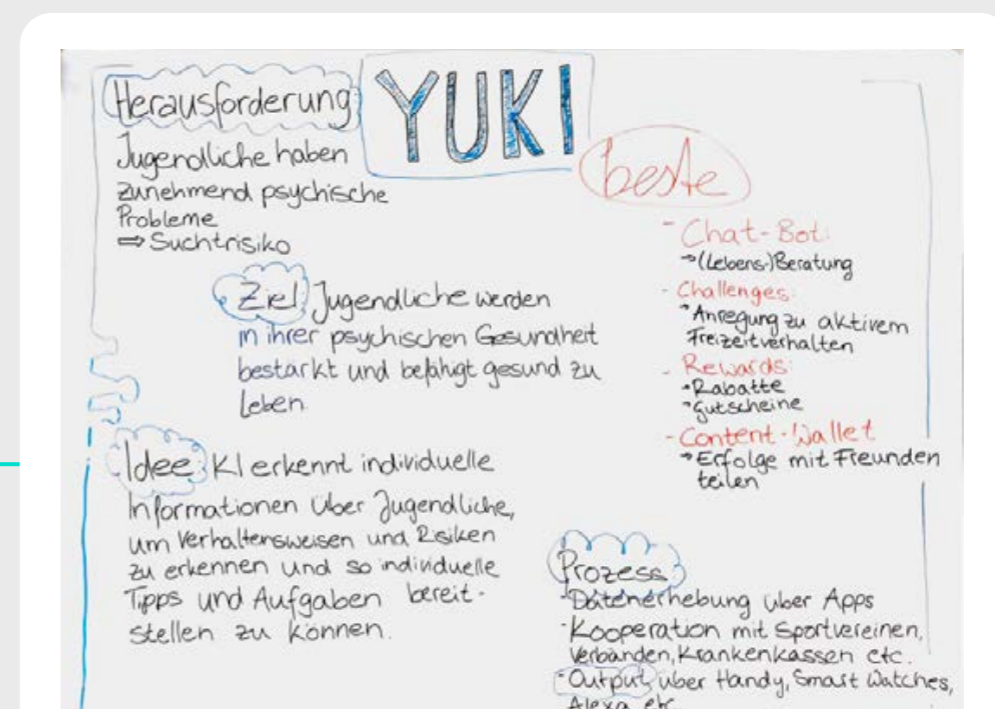 YUKI
Herausforderung
Jugendliche haben
zunehmend psychische
Probleme
⇒ Suchtrisiko
Ziel: Jugendliche werden
in ihrer psychischen Gesundheit
bestärkt und befähigt gesund zu
leben.
Idee: KI erkennt individuelle
Informationen über Jugendliche,
um Verhaltensweisen und Risiken
zu erkennen und so individuelle
Tipps und Aufgaben bereit-
stellen zu können.
beste
- Chat-Bot:
→(Lebens-)Beratung
- Challenges:
→Anregung zu aktivem
Freizeitverhalten
- Rewards:
→Rabatte
→Gutscheine
- Content-Wallet
→Erfolge mit Freunden
teilen
Prozess
-Datenerhebung über Apps
-Kooperation mit Sportvereinen,
Verbänden, Krankenkassen etc.
-Output über Handy, Smart Watches,
Alexa etc.